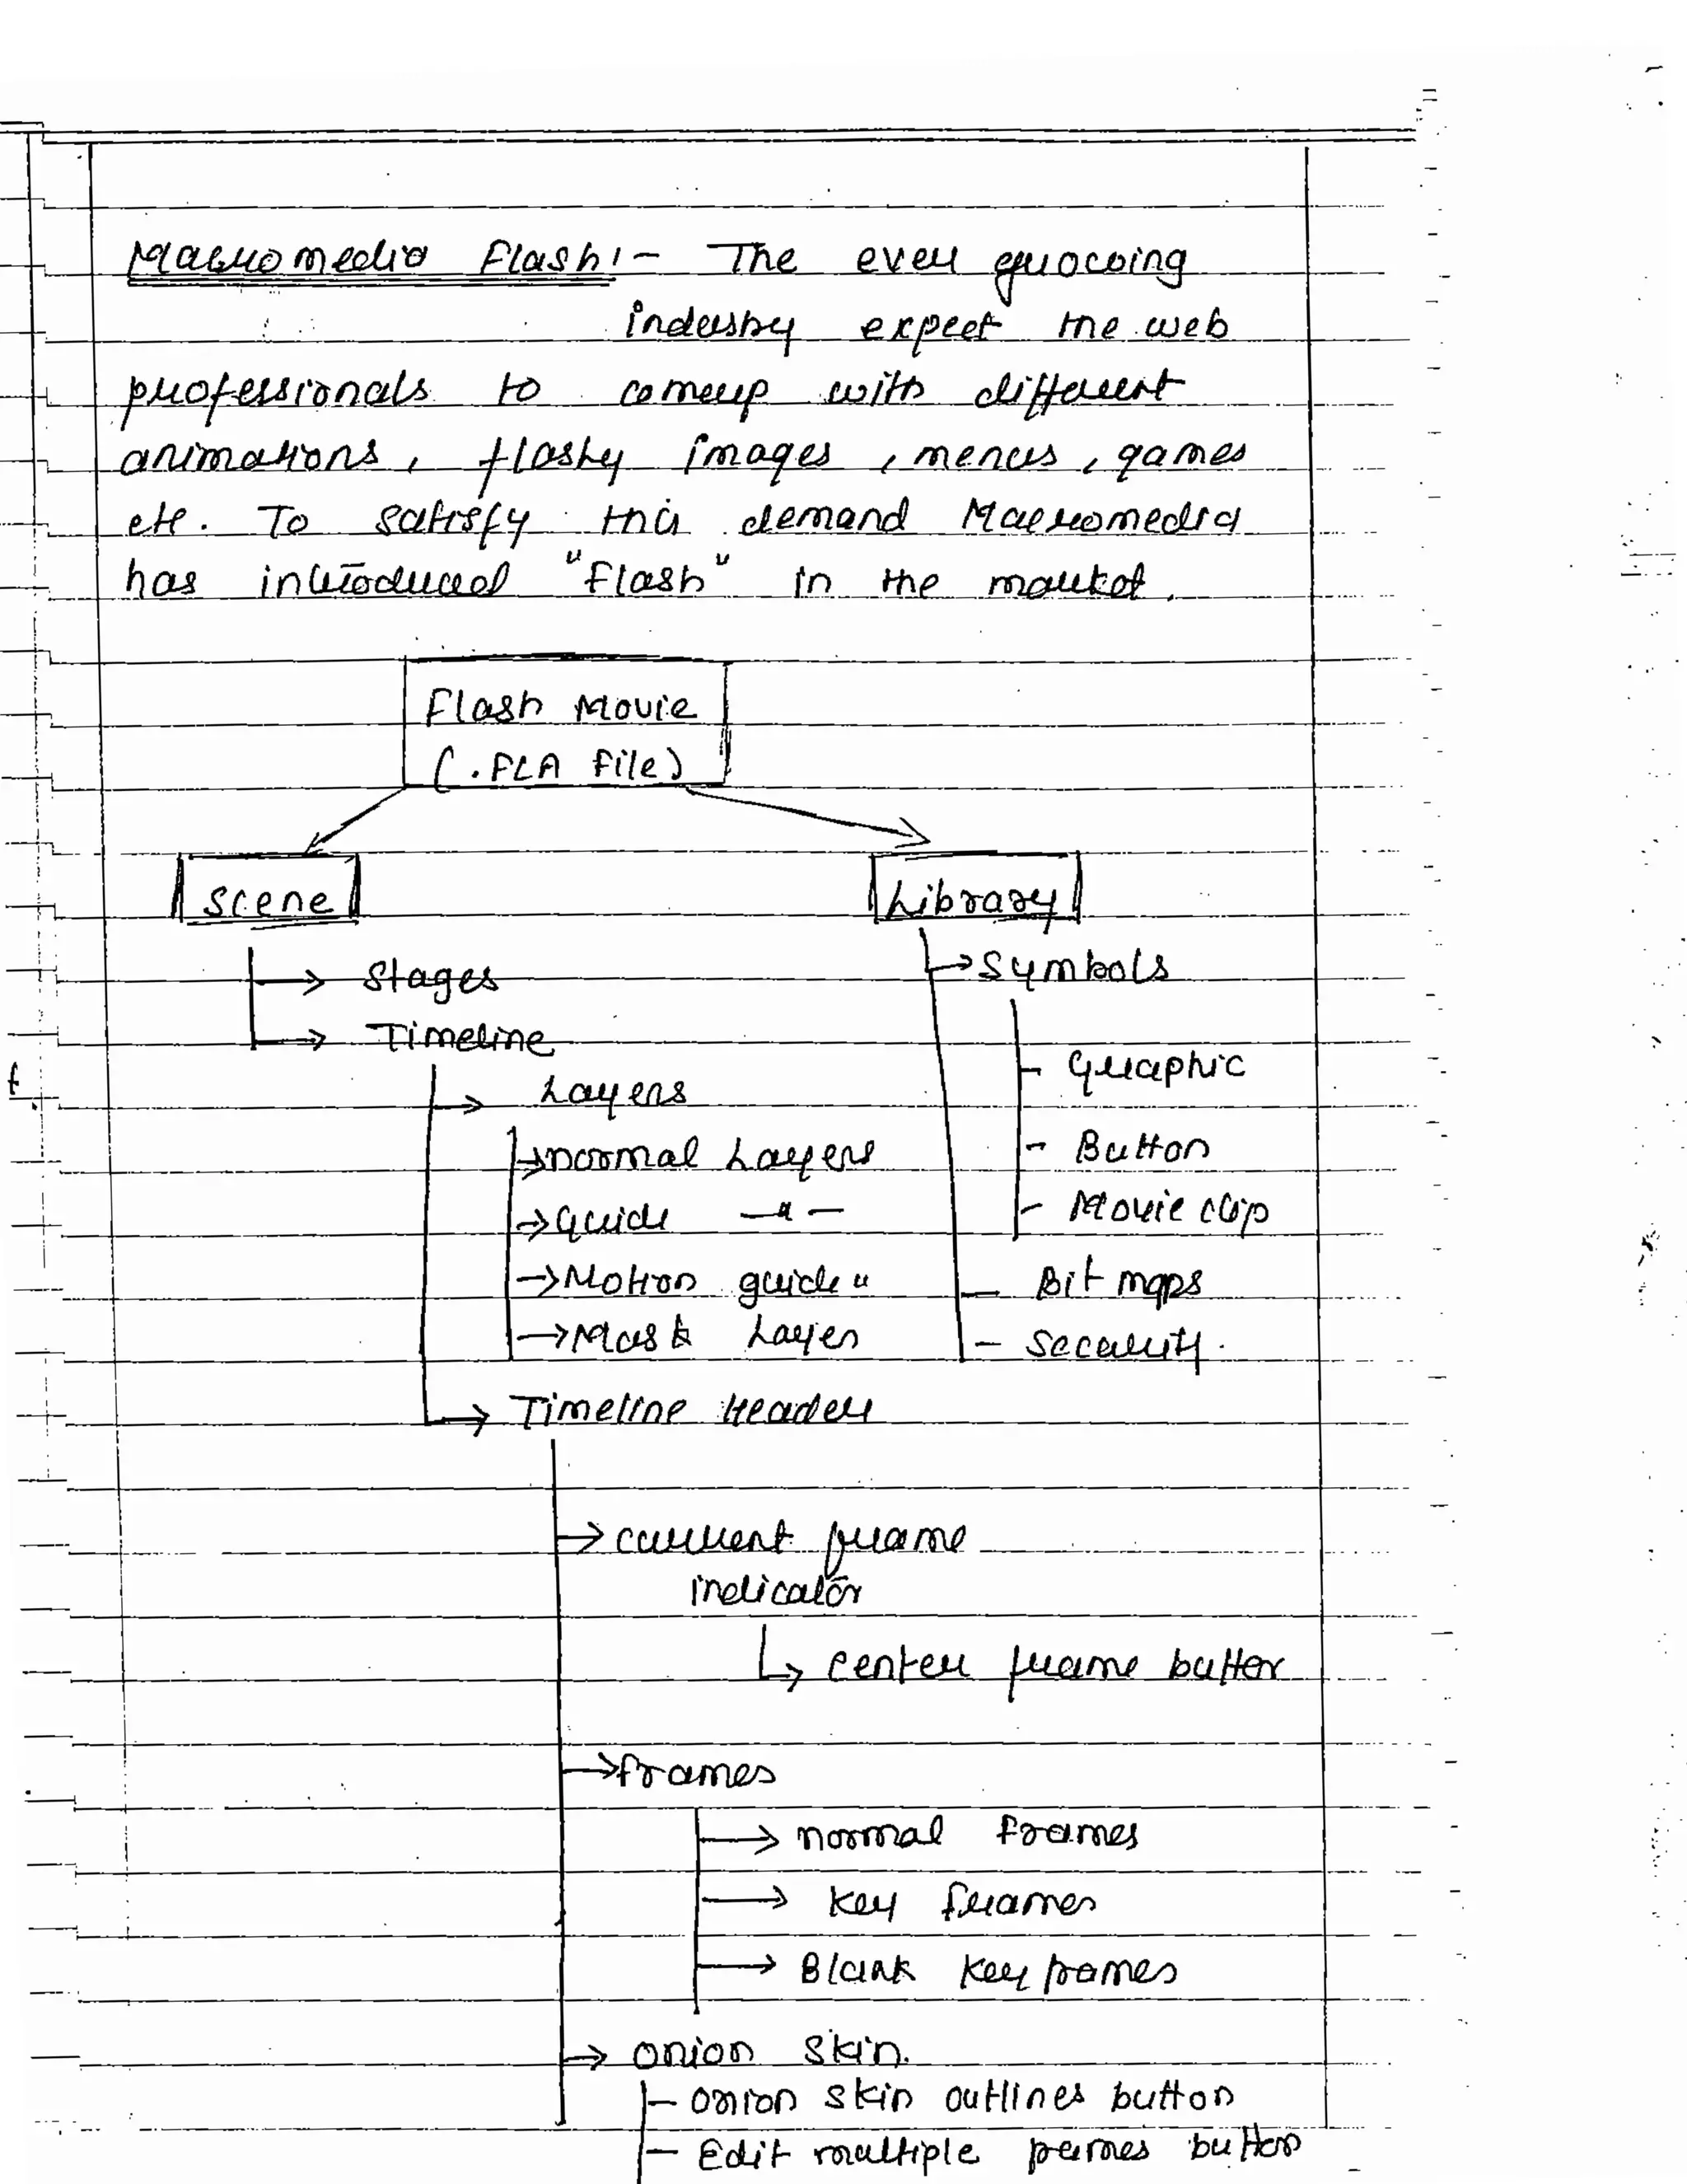 Macromedia Flash:- The ever growing
industry expect the web
professionals to comeup with different
animations, flashy images, menus, games
etc. To satisfy this demand Macromedia
has introduced "Flash" in the market.
Flash Movie
(.FLA File)
Scene
Library
→ Stages
→ Symbols
→ Timeline
- Graphic
→ Layers
→ normal Layers
- Button
→ Guide —"—
- Movie clip
→ Motion guide "
- Bit maps
→ Mask Layer
- Security.
→ Timeline Header
→ current frame
indicator
→ center frame button
→ frames
→ normal frames
→ key frames
→ Blank key frames
→ onion skin.
- onion skin outlines button
- Edit multiple frames button